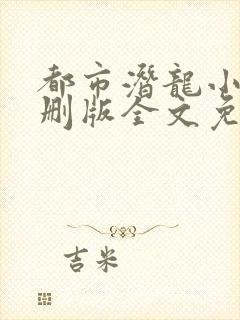 都市潛龍小
刪版全文免
吉米